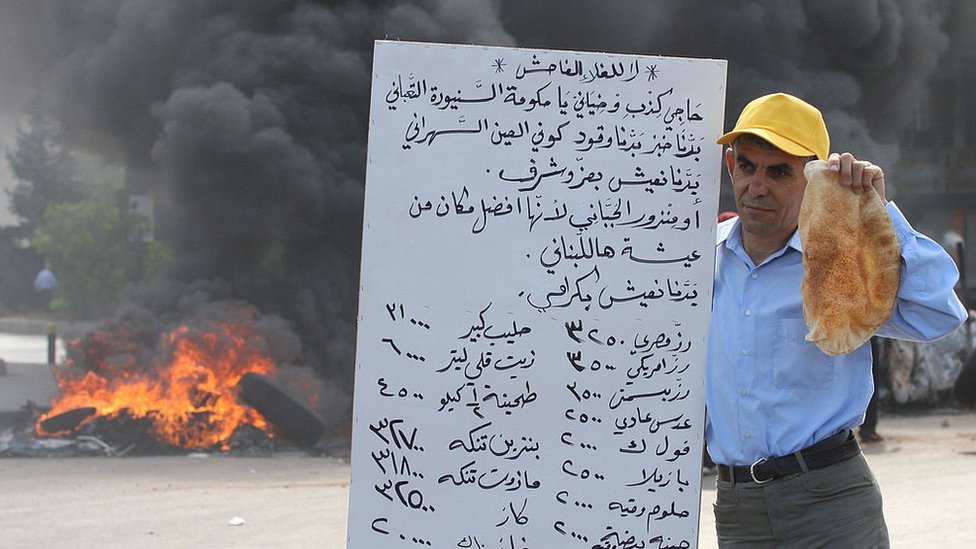 * لا للغلاء الفاحش *
حاجي كذب وضياني يا حكومة السنيورة التعباني
بدّنا خبز بدّنا وقود كوني العين السهراني
بدّنا نعيش بعز وشرف.
أو منزور الجبّاني لأنها افضل مكان من
عيشة هاللبناني.
بدّنا نعيش بكرامي.
رز مصري ٣٢٥٠ حليب كبير ٣١٠٠٠
رز امريكي ٣٥٠٠ زيت قلي ليتر ٦٠٠٠
رز بسمتي ٣٥٠٠ طحينة ١/٢ كيلو ٤٥٠٠
عدس عادي ٢٥٠٠ بنزين تنكه ٣٢٧٠٠
فول ك ٢٠٠٠ مازوت تنكه ٣١٨٠٠
بازيلا ٢٥٠٠ كاز ٣٢٥٠٠
حلوم وقيه ٢٠٠٠ ٢٠٠٠
٢٠٠٠